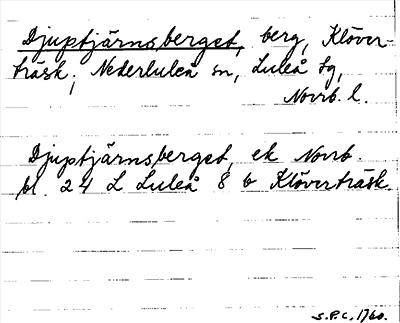 Djuptjärnsberget, berg, Klöver-
träsk, Nederluleå sn, Luleå tg,
Norrb. l.
Djuptjärnsberget, ek Norrb.
bl. 24 L Luleå 8 b Klöverträsk.
S.P.C. 1760.